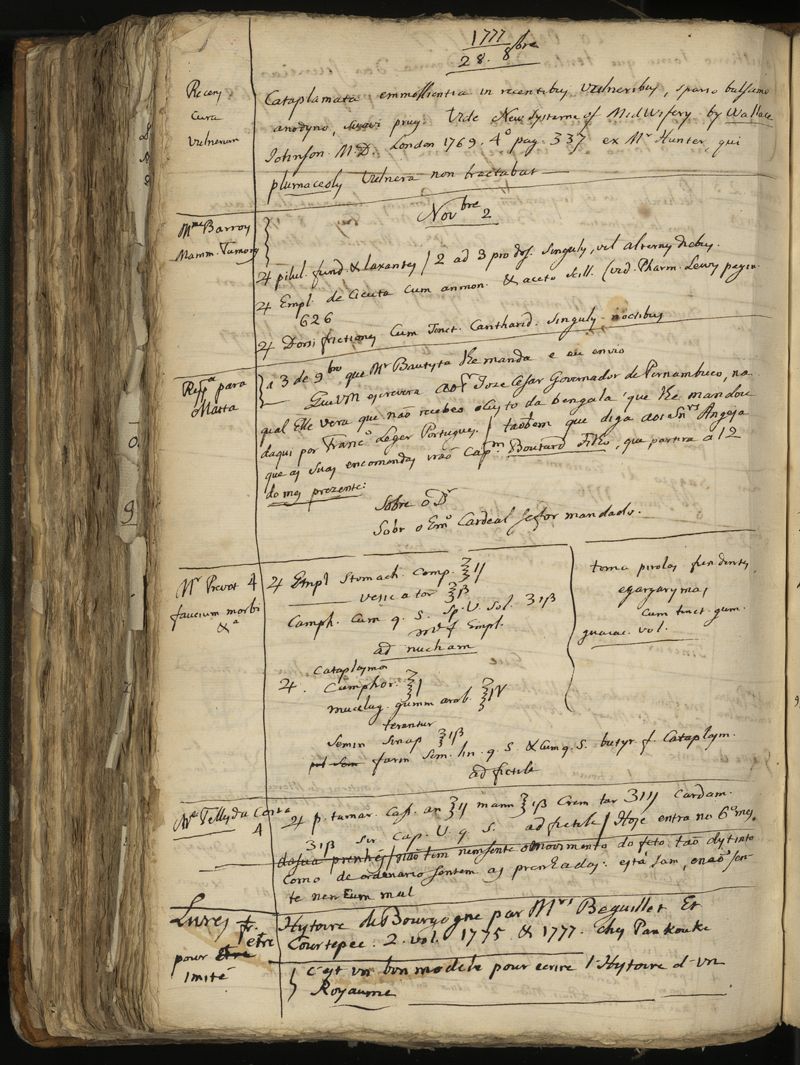 1777
28. 8bre
Recens
Cura
Vulnerum
Cataplamata emmollientia in recentibus vulneribus, sparso balsamo
anodyno, suavi prius. Vide New Systeme of MidWifery by Wallace
Johnson M.D. London 1769. 4º pag. 337 ex Mr Hunter, qui
plumaceolis vulnera non tractabat
Novbre 2
Mme Barros
Mamm. Tumores
♃ pilul. fund. & laxantes / 2 ad 3 pro dos. singulis, vel alternis diebus.
♃ Empl. de Cicuta cum ammon. & aceto scill. (vid. Pharm. Lewis pagin.
626
♃ Dorsi frictiones cum Tinct. Cantharid. singulis noctibus
Respta para
Matta
a 3 de 9bro que Mr Bautista he manda e eu envio
Que VM escrevera ao Sr Joze Cesar Governador de Pernambuco, na
qual Elle vera que não recebeo o Cesto da bengala que he mandou
daqui por Francº Leger Portugues / taobem que diga aos Snrs Angeja
que as suas encomendas vaõ Capm Boutard Filho, que partira a 12
do mes prezente:
Sobre o Dr
Sobr o Emo Cardeal se for mandado.
Mr Prevot 4
faucium morbi
&a
♃ Empl Stomach. Comp. ℥ij
vesicator ℥iβ
Camph. cum q. S. Sp. V. Sol. ʒiβ
mr f Empl.
ad nucham
toma pirolas fundentes
e gargarismas
cum tinct. gum.
guaiac. vol.
Cataplasma
♃. Camphor. ℥i
mucilag. gumm arab. ℥iv
terantur
Semin Sinap ℥iβ
farin Sem. lin. q. S. & cum q. S. butyr f. Cataplasm.
ad fictile
Mra Telles da Costa
4
♃ p. tamar. Cass. an ℥ij mann ℥iβ Crem tar ʒiij Cardam.
ʒiβ Sir Cap. V. q. S. ad fictile / Hoje entra no 6º mes
da sua prenhes / naõ tem nem sente o movimento do feto taõ distinto
como de ordenario sentem as prenhadas: está sam, e naõ sen-
te nenhum mal
Livres fr.
pour Etre
imité
Hystoire de Bourgogne par Mrs Beguillet Et
Courtepée. 2. vol. 1775 & 1777. chez Pankouke
c'est un bon modele pour ecrire l'Hystoire d'un
Royaume